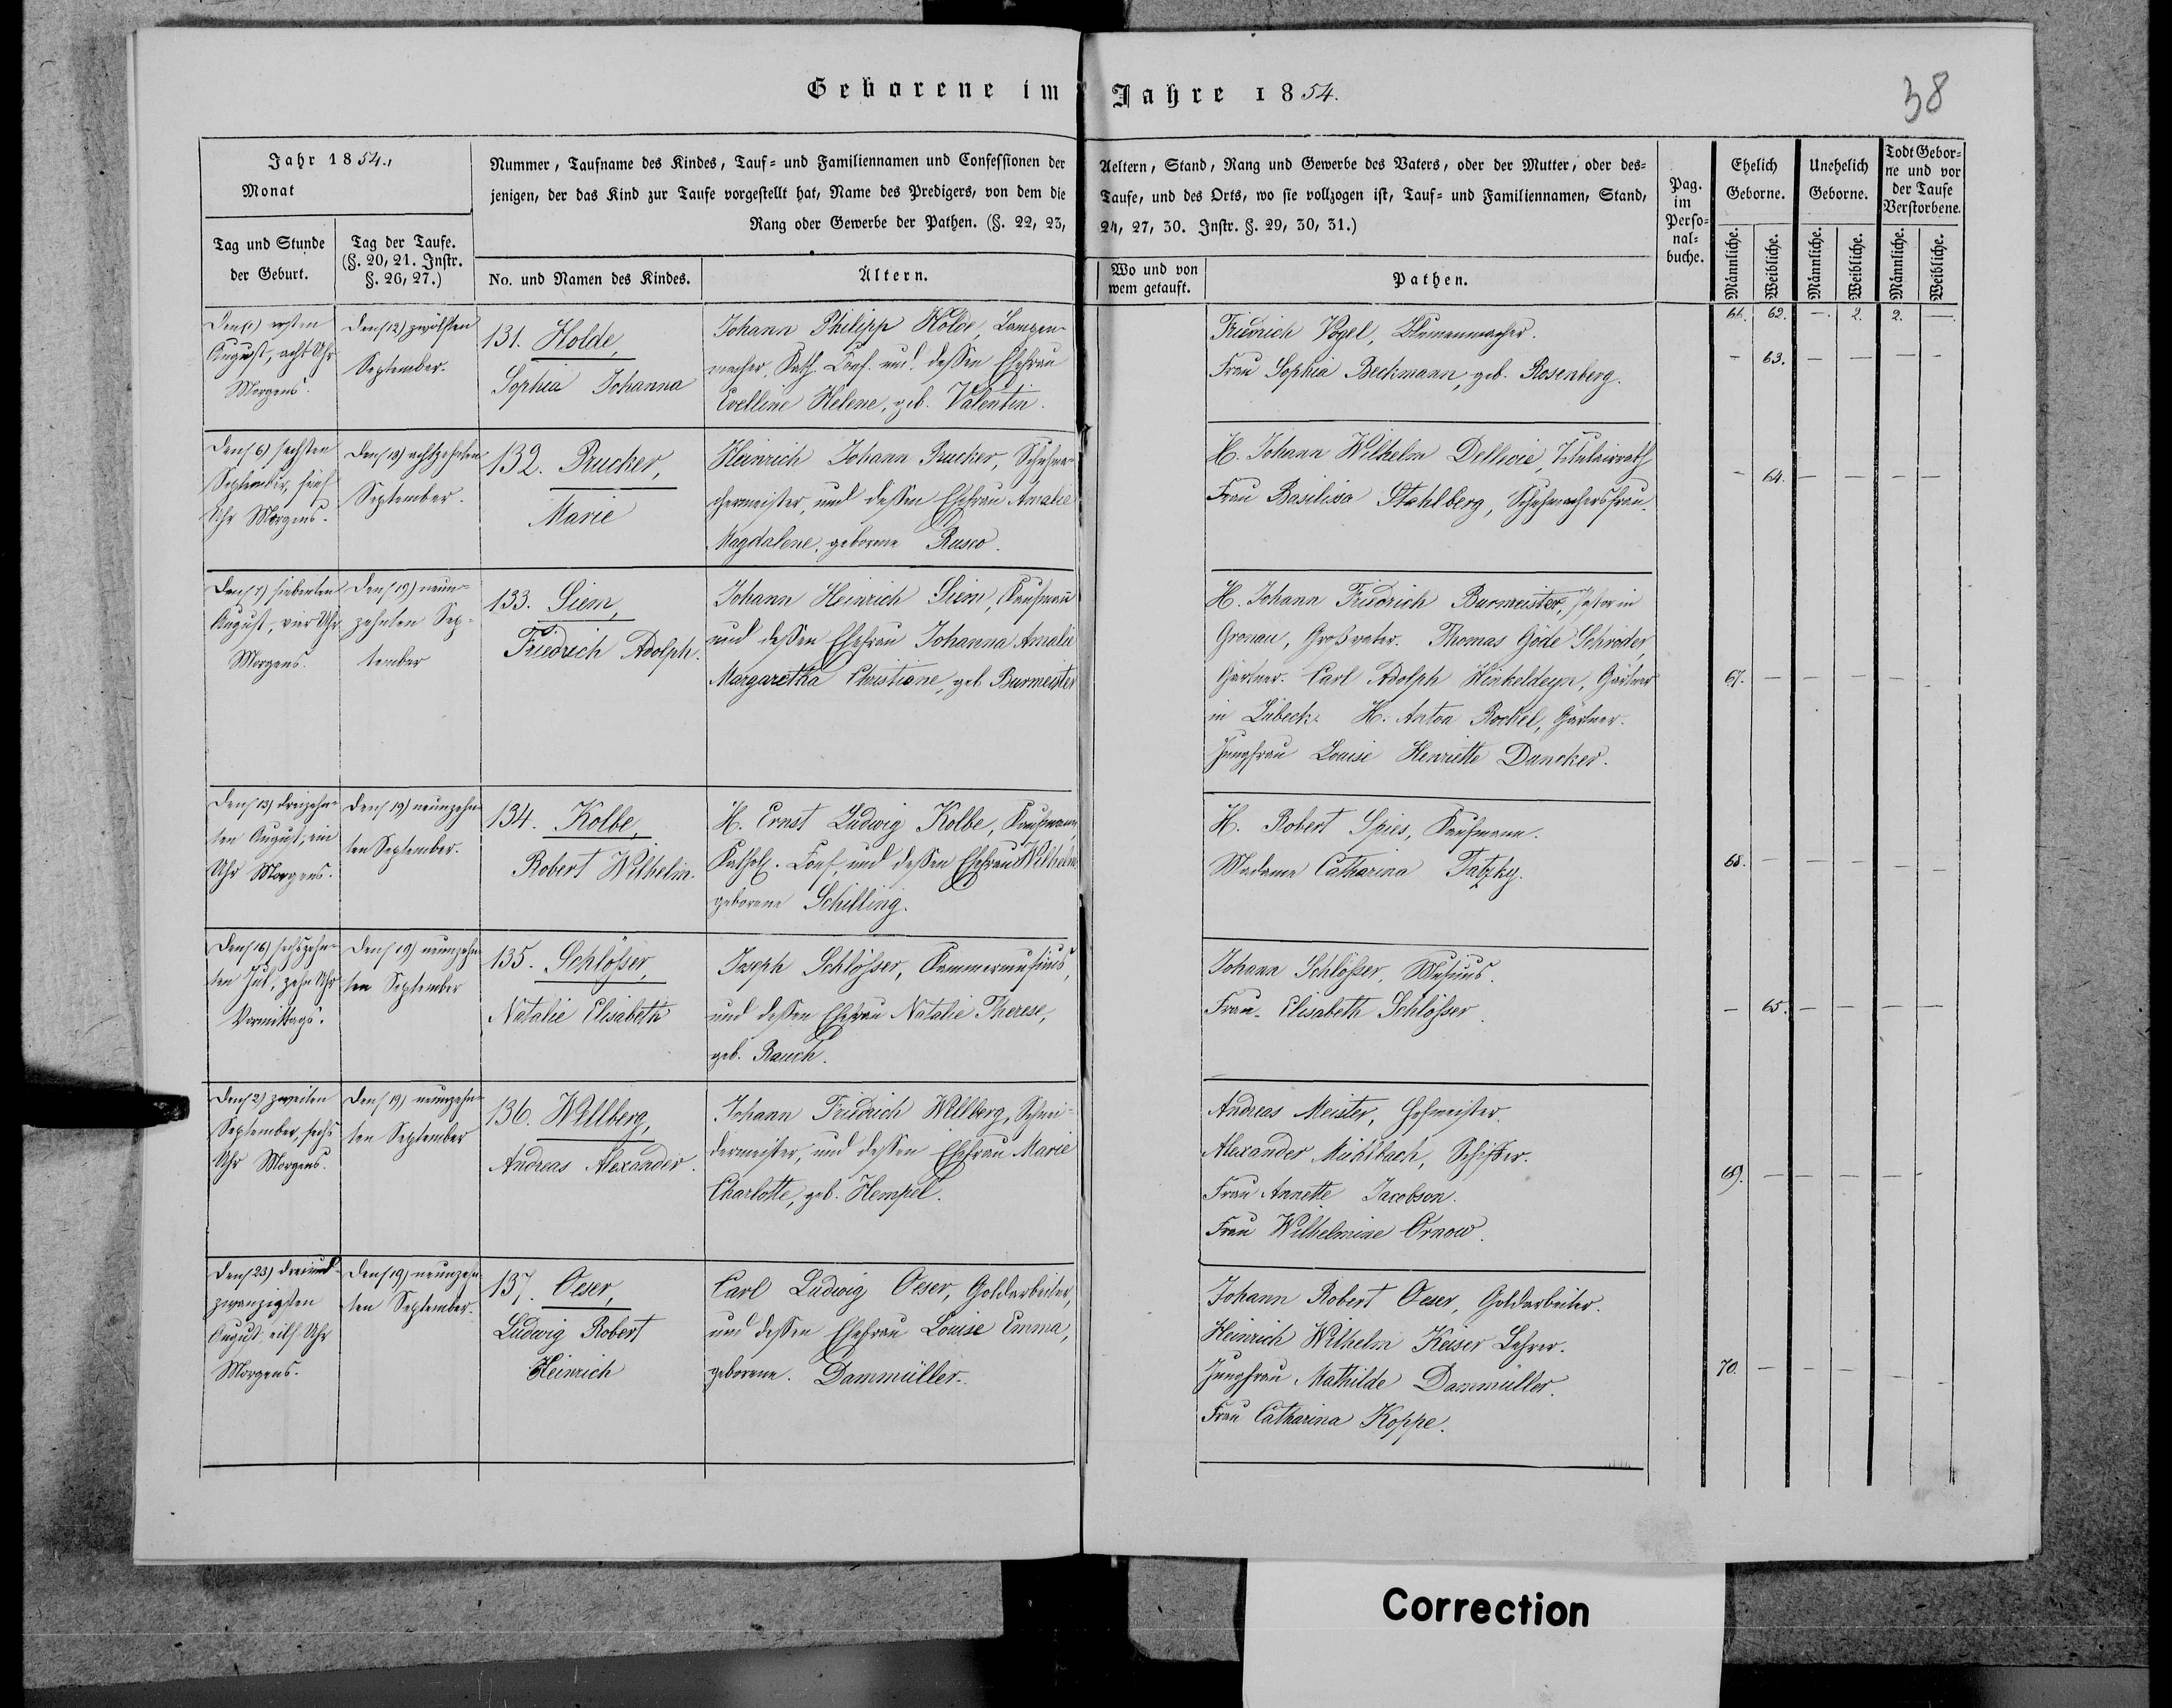 Geborene im Jahre 1854.
38
Jahr 1854.
Monat
Tag und Stunde
der Geburt.
Tag der Taufe.
(§. 20, 21. Instr.
§. 26, 27.)
Nummer, Taufname des Kindes, Tauf- und Familiennamen und Confessionen der Aeltern, Stand, Rang und Gewerbe des Vaters, oder der Mutter, oder des-
jenigen, der das Kind zur Taufe vorgestellt hat, Name des Predigers, von dem die Taufe, und des Orts, wo sie vollzogen ist, Tauf- und Familiennamen, Stand,
Rang oder Gewerbe der Pathen. (§. 22, 23, 24, 27, 30. Instr. §. 29, 30, 31.)
No. und Namen des Kindes.
Ältern.
Wo und von
wem getauft.
Pathen.
Pag.
im
Perso-
nal-
buche.
Ehelich
Geborne.
Unehelich
Geborne.
Todt Gebor-
ne und vor
der Taufe
Verstorbene.
Männliche.
Weibliche.
Männliche.
Weibliche.
Männliche.
Weibliche.
66. 62. —. 2. 2. —.
Den (1) ersten
August, acht Uhr
Morgens.
Den (12) zwölften
September.
131. Holde,
Sophia Johanna
Johann Philipp Holde, Lampen-
macher, Kath. Conf. und dessen Ehefrau
Evelline Helene, geb. Valentin.
Friedrich Vogel, Blumenmacher.
Frau Sophia Beckmann, geb. Rosenberg.
— 63. — — — —
Den (6) sechsten
September, fünf
Uhr Morgens.
Den (18) achtzehnten
September.
132. Prucker,
Marie
Heinrich Johann Prucker, Schuhma-
chermeister, und dessen Ehefrau Amalie
Magdalene, geborene Rusco.
H. Johann Wilhelm Dellivie, Titulairrath
Frau Basilissa Stahlberg, Schuhmachersfrau.
— 64. — — — —
Den (7) siebenten
August, vier Uhr
Morgens.
Den (19) neun-
zehnten Sep-
tember
133. Siem,
Friedrich Adolph.
Johann Heinrich Siem, Kaufmann
und dessen Ehefrau Johanna Amalie
Margaretha Christiane, geb. Burmeister
H. Johann Friedrich Burmeister, Pastor in
Gronau, Großvater. Thomas Göde Schröder,
Gärtner. Carl Adolph Hinkeldeyn, Gärtner
in Lübeck. H. Anton Rockel, Gärtner.
Jungfrau Louise Henriette Duncker.
67. — — — — —
Den (13) dreizehn-
ten August, ein
Uhr Morgens.
Den (19) neunzehn-
ten September.
134. Kolbe,
Robert Wilhelm.
H. Ernst Ludwig Kolbe, Kaufmann,
Kathol. Conf. und dessen Ehefrau Wilhelm.
geborene Schilling.
H. Robert Spies, Kaufmann.
Madame Catharina Tatzky.
68. — — — — —
Den (16) sechszehn-
ten Juli, zehn Uhr
Vormittags.
Den (19) neunzehn-
ten September
135. Schlösser,
Natalie Elisabeth
Joseph Schlösser, Kammermusicus,
und dessen Ehefrau Natalie Therese,
geb. Rauch.
Johann Schlösser, Musicus.
Frau Elisabeth Schlösser.
— 65. — — — —
Den (2) zweiten
September, sechs
Uhr Morgens.
Den (19) neunzehn-
ten September
136. Willberg,
Andreas Alexander.
Johann Friedrich Willberg, Schnei-
dermeister, und dessen Ehefrau Marie
Charlotte, geb. Hempel.
Andreas Meister, Hofmeister.
Alexander Mühlbach, Schiffer.
Frau Annette Jacobson.
Frau Wilhelmine Ornow.
69. — — — — —
Den (23) dreiund-
zwanzigsten
August, eilf Uhr
Morgens.
Den (19) neunzehn-
ten September.
137. Oeser,
Ludwig Robert
Heinrich
Carl Ludwig Oeser, Goldarbeiter,
und dessen Ehefrau Louise Emma,
geborene Dammüller.
Johann Robert Oeser, Goldarbeiter.
Heinrich Wilhelm Keiser Lehrer.
Jungfrau Mathilde Dammüller.
Frau Catharina Koppe.
70. — — — — —
Correction